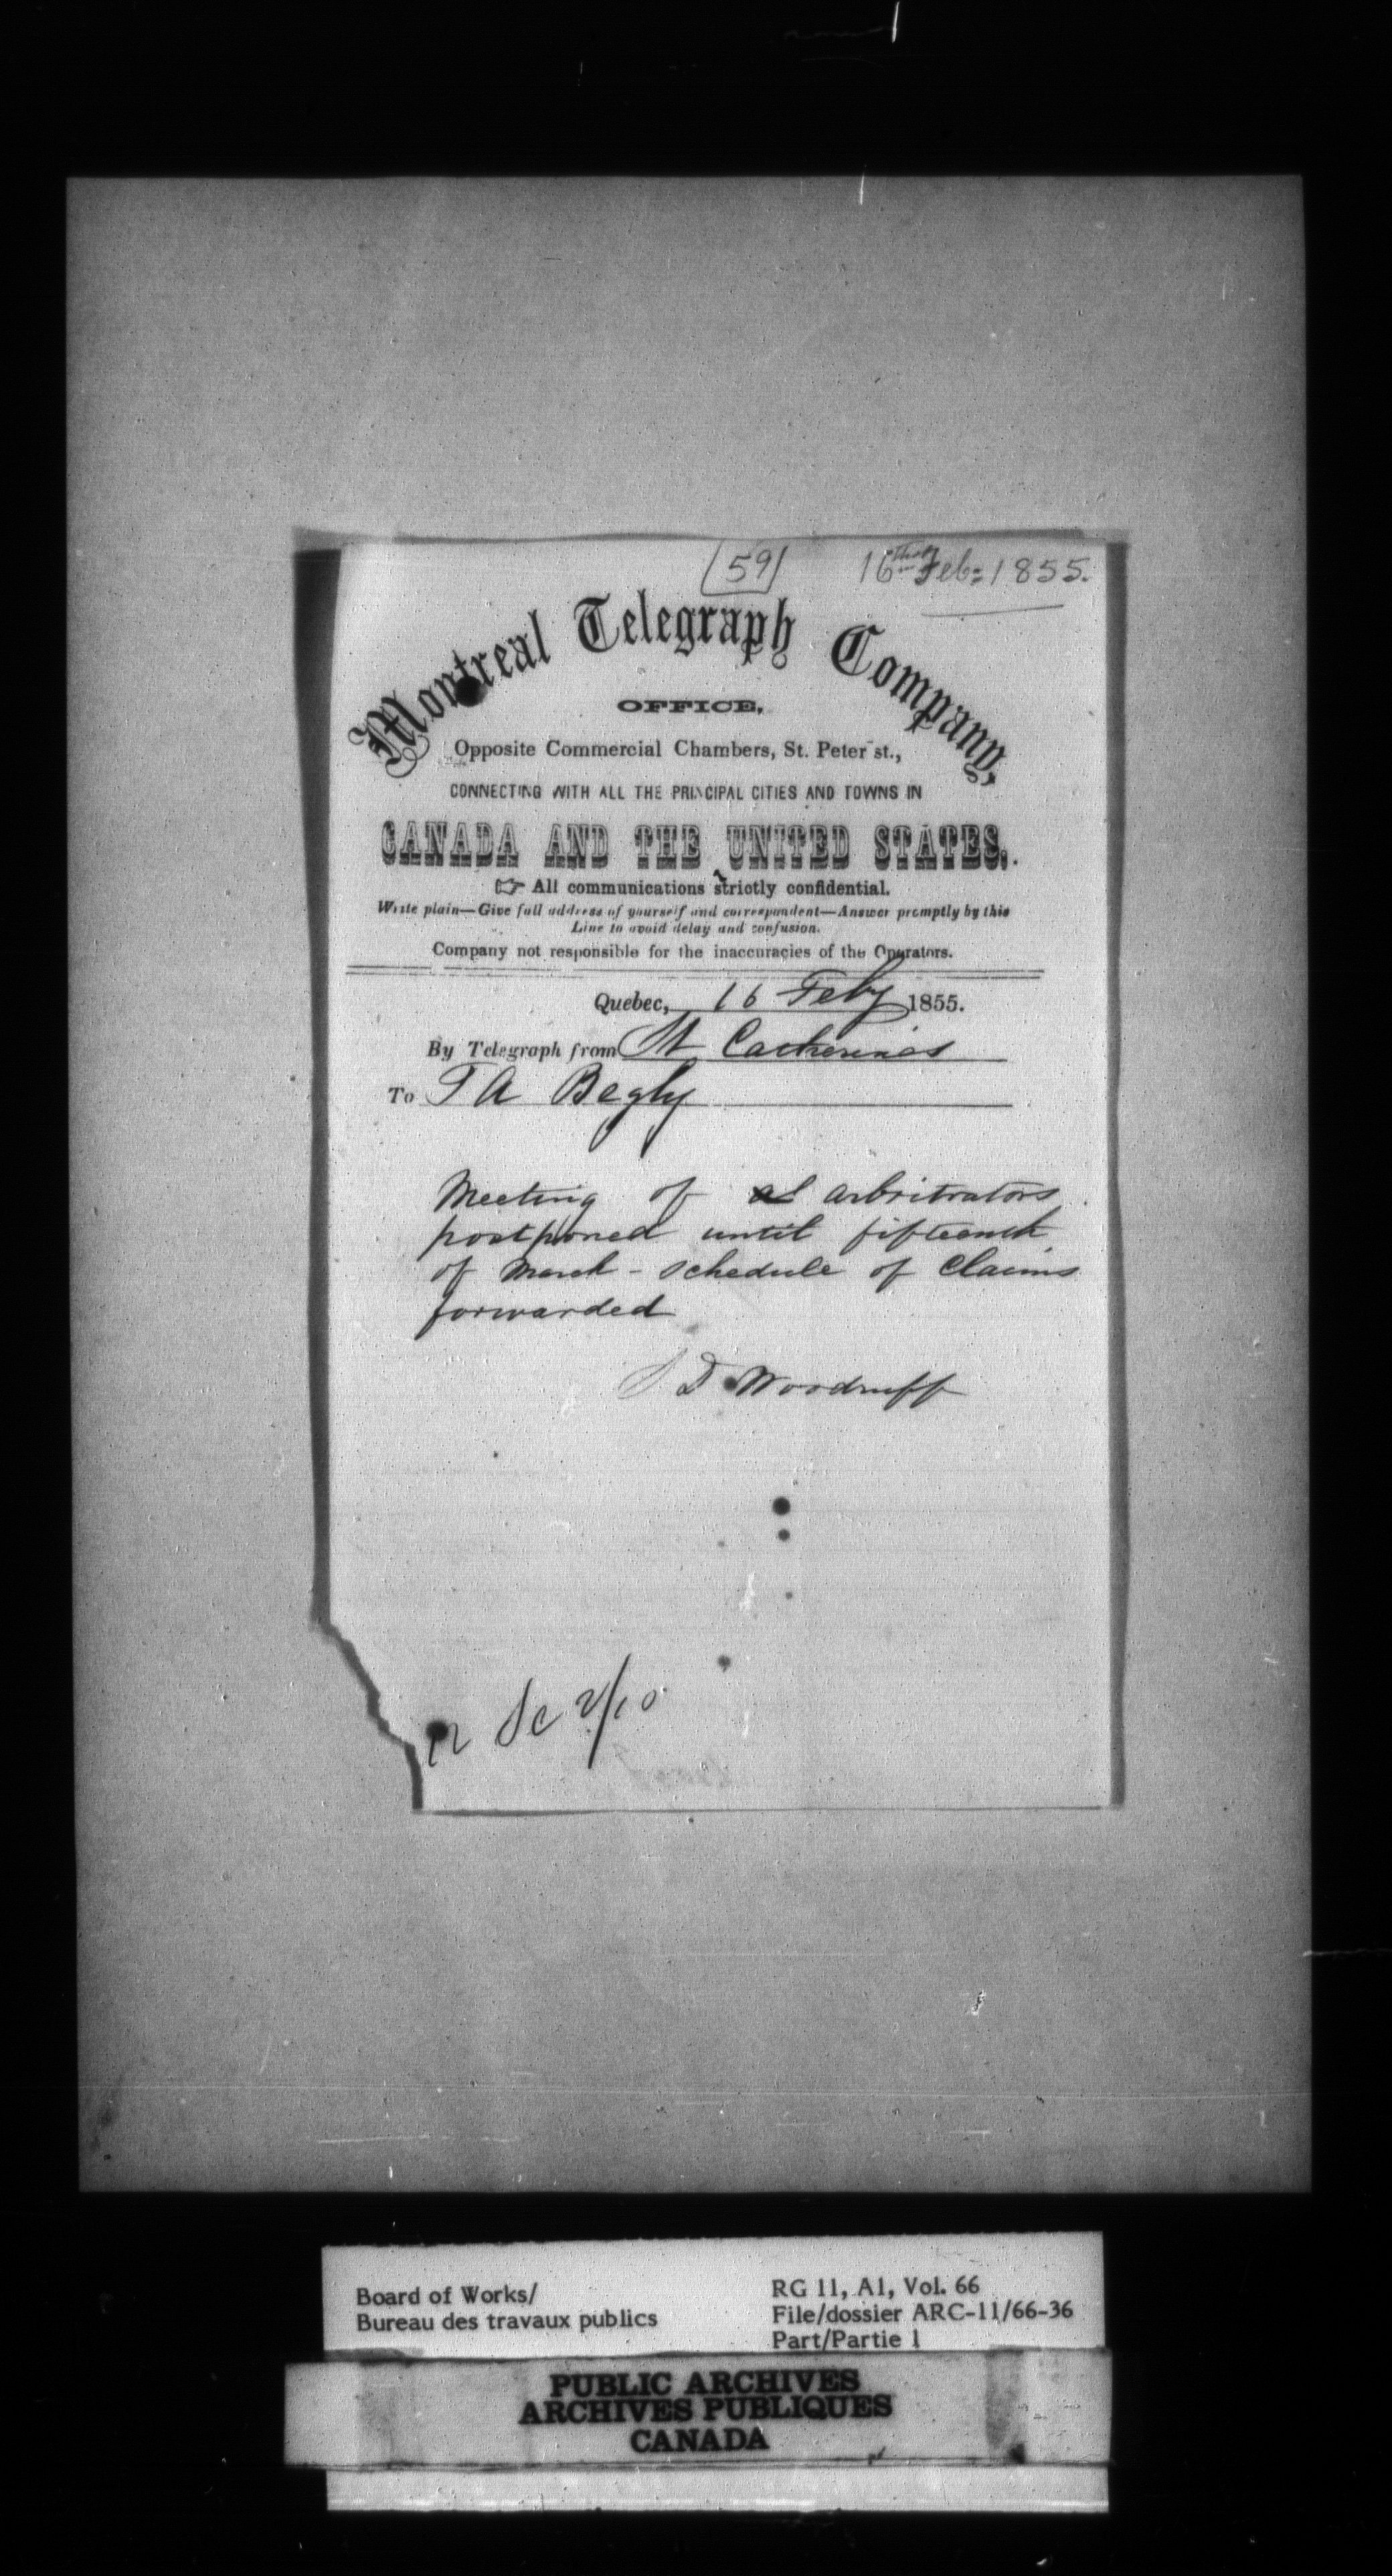 59
16th Feb: 1855.
Montreal Telegraph Company,
OFFICE,
Opposite Commercial Chambers, St. Peter st.,
CONNECTING WITH ALL THE PRINCIPAL CITIES AND TOWNS IN
CANADA AND THE UNITED STATES,.
☞ All communications strictly confidential.
Write plain—Give full address of yourself and correspondent—Answer promptly by this
Line to avoid delay and confusion.
Company not responsible for the inaccuracies of the Operators.
Quebec, 16 Feby 1855.
By Telegraph from St Catherines
To T A Begly
Meeting of arbitrators
postponed until fifteenth
of March - schedule of Claims
forwarded
S D Woodruff
12 Sc 2/10
Board of Works/
Bureau des travaux publics
RG 11, A1, Vol. 66
File/dossier ARC-11/66-36
Part/Partie 1
PUBLIC ARCHIVES
ARCHIVES PUBLIQUES
CANADA